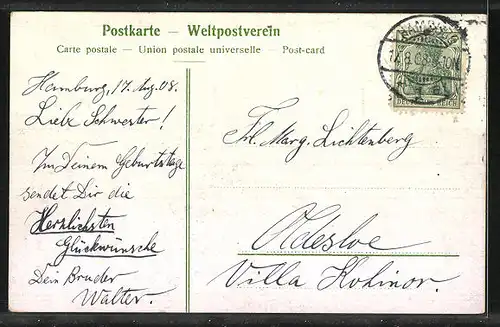 Postkarte – Weltpostverein
Carte postale – Union postale universelle – Post-card
HAMBURG
17.8.08
10N
Hamburg, 17. Aug. 08.
Liebe Schwester!
Zu Deinem Geburtstage
sendet Dir die
Herzlichsten
Glückwünsche
Dein Bruder
Walter.
Frl. Marg. Lichtenberg
Oldesloe
Villa Kohinor.